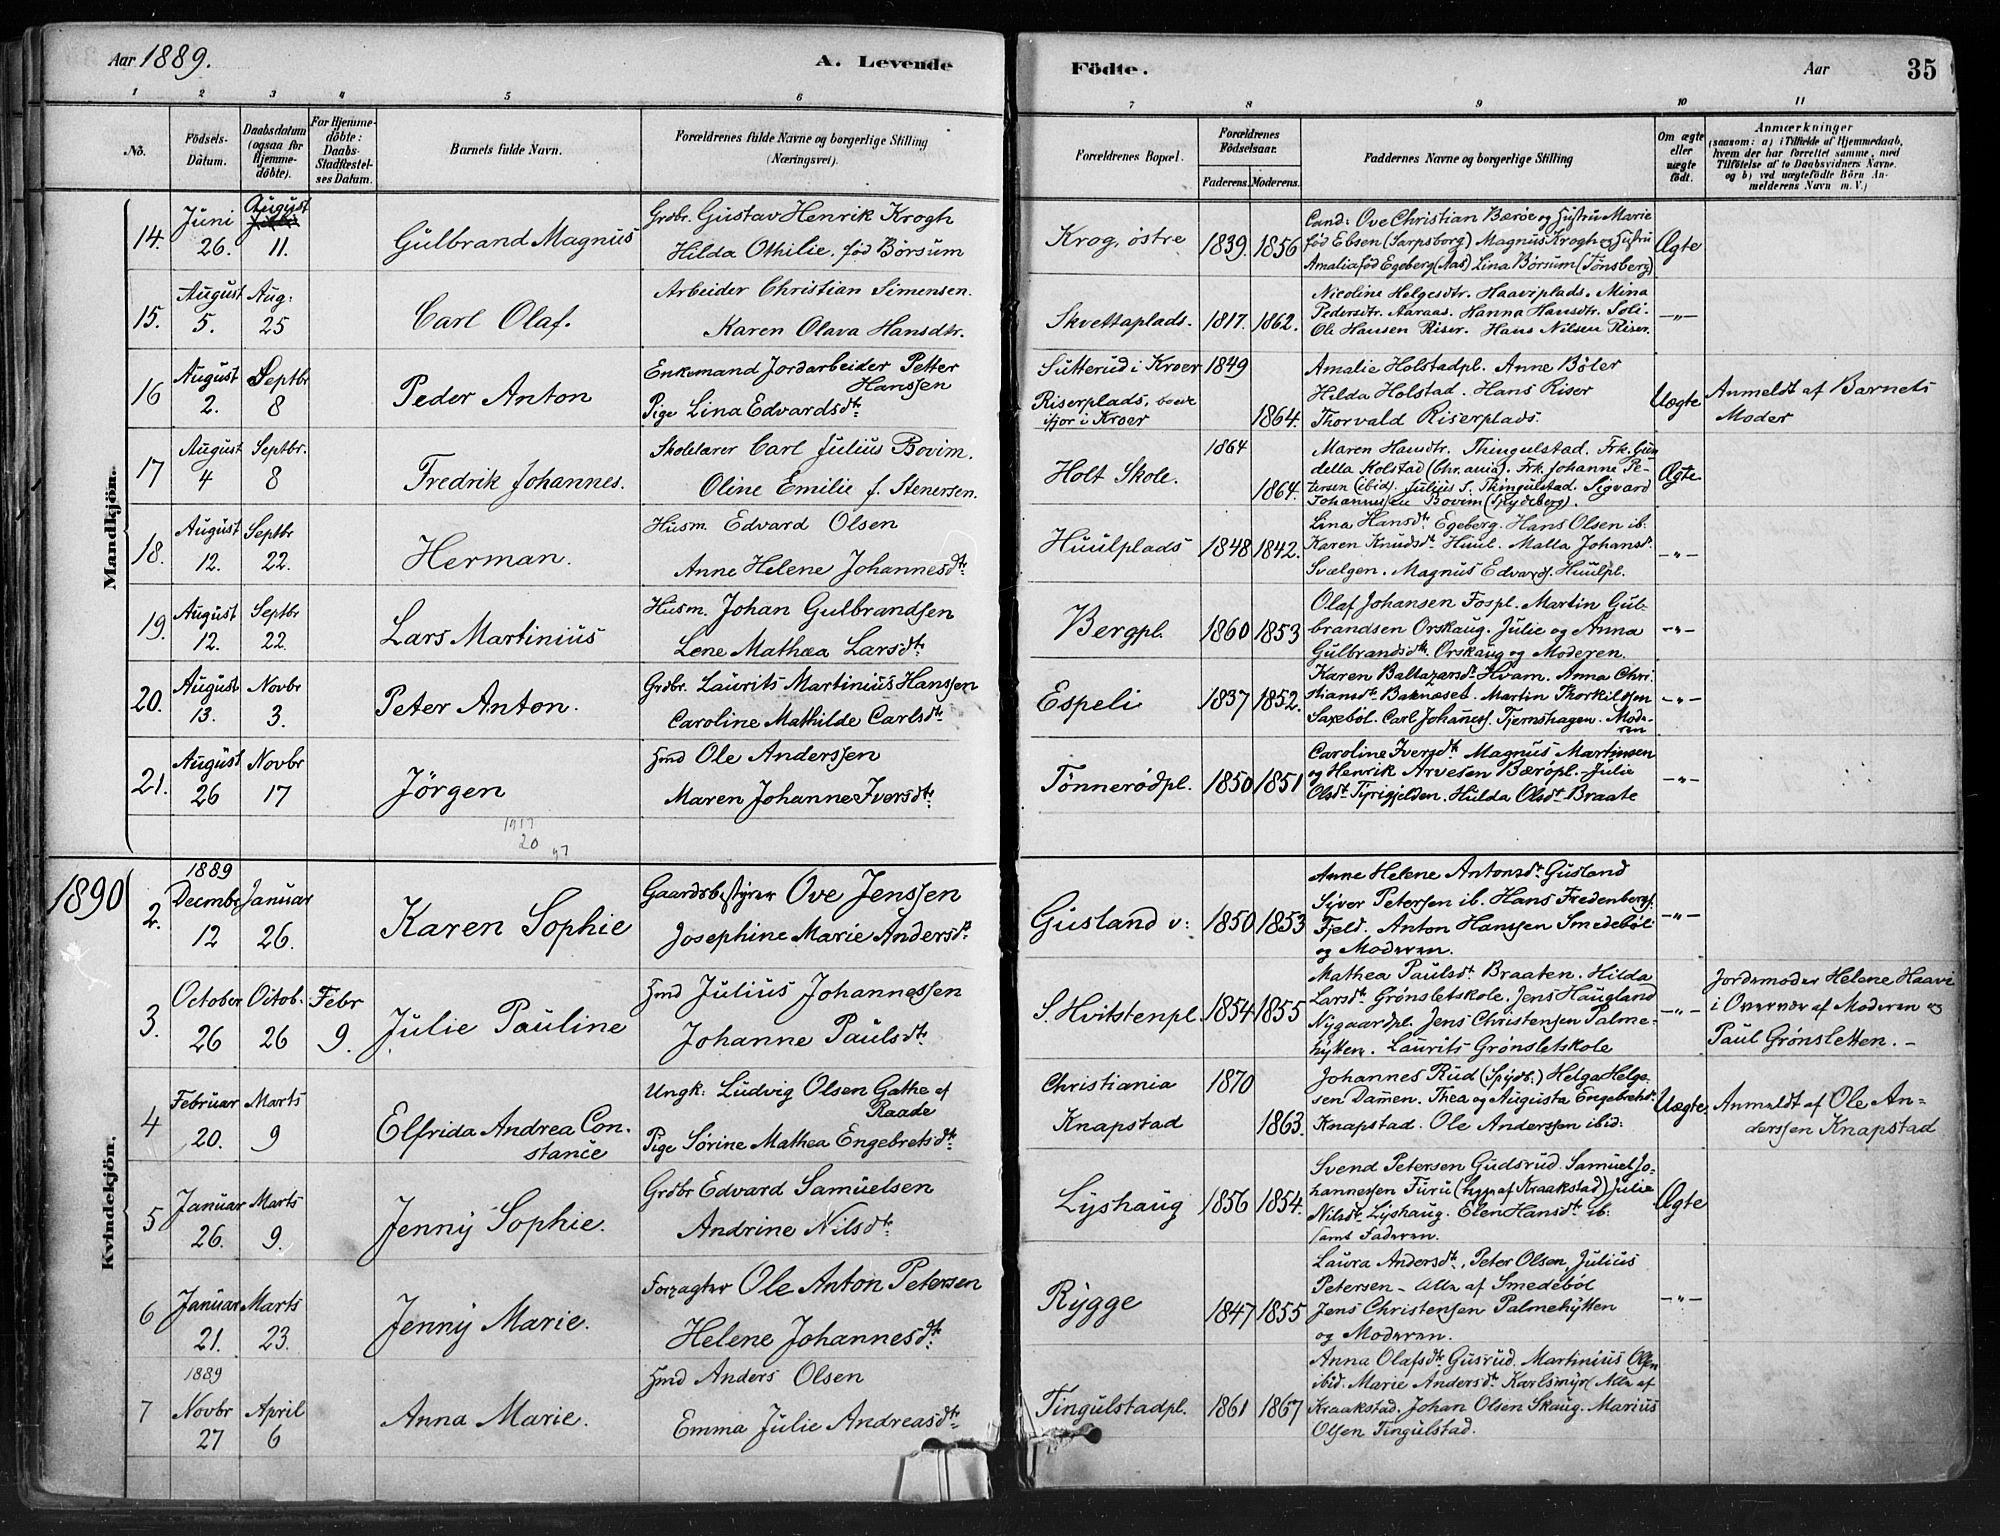 Aar 1889.
A. Levende
Födte.
Aar
35
1 2 3 4 5 6
7 8 9 10 11
No.
Födsels-
Datum.
Daabsdatum
(ogsaa for
Hjemme-
döbte).
For Hjemme-
döbte:
Daabs-
Stadfæstel-
ses Datum.
Barnets fulde Navn.
Forældrenes fulde Navne og borgerlige Stilling
(Næringsvei).
Forældrenes Bopæl.
Forældrenes
Födselsaar.
Faderens. Moderens.
Faddernes Navne og borgerlige Stilling
Om ægte
eller
uægte
födt.
Anmærkninger
(saasom: a) i Tilfælde af Hjemmedaab,
hvem der har forrettet samme, med
Tilföielse af to Daabsvidners Navne.
og b) ved uægtefödte Börn An-
melderens Navn m. V.)
Mandkjön.
14. Juni 26. August 11.
Gulbrand Magnus
Grdbr. Gustav Henrik Krogh
Hilda Othilie, fød Børsum
Krog, østre
1839. 1856
Cand: Ove Christian Bærøe og Hustru Marie
fød Ebsen (Sarpsborg) Magnus Krogh og Hustru
Amalia fød Egeberg (Aas) Lina Børsum (Tønsberg)
Ægte
15. August 5. Aug: 25
Carl Olaf.
Arbeider Christian Simensen.
Karen Olava Hansdtr.
Skvettaplads.
1817. 1862.
Nicoline Helgesdtr. Haaviplads. Mina
Pedersdtr. Aaraas. Hanna Hansdtr. Soli-
Ole Hansen Riser. Hans Nilsen Riser.
—"—
16 August 2. Septbr 8
Peder Anton
Enkemand Jordarbeider Petter
Hanssen
Pige Lina Edvardsdtr
Sutterud i Kroer
Riserplads, boede
ifjor i Kroer
1849
1864.
Amalie Holstadpl. Anne Bøler
Hilda Holstad. Hans Riser
Thorvald Riserplads.
Uægte
Anmeldt af Barnets
Moder
17 August 4 Septbr. 8
Fredrik Johannes.
Skolelærer Carl Julius Bovim.
Oline Emilie f. Stenersen.
Holt Skole.
1864
1864.
Maren Hansdtr. Thingulstad. Frk. Gun
della Kolstad (Chr.ania). Frk. Johanne Pe-
tersen (ibid). Julius S. Thingulstad. Sigvard
Johannessen Bovim (Spydeberg).
Ægte
18. August 12. Septbr 22.
Herman.
Husm. Edvard Olsen
Anne Helene Johannesdtr
Huulplads
1848 1842.
Lina Hansdtr. Egeberg. Hans Olsen ib:
Karen Knudsdtr. Huul. Malla Johansd.
Svælgen. Magnus Edvards. Huulpl.
—"—
19. August 12. Septbr 22.
Lars Martinius
Husm. Johan Gulbrandsen
Lene Mathea Larsdtr
Bergpl.
1860 1853
Olaf Johansen Fospl. Martin Gul-
brandsen Orskaug. Julie og Anna
Gulbrandsdtr. Orskaug og Moderen.
—"—
20. August 13. Novbr 3.
Peter Anton.
Grdbr. Laurits Martinius Hanssen
Caroline Mathilde Carlsdtr
Espeli
1837 1852.
Karen Baltazarsdtr. Hvam. Anna Chri-
stiansdtr. Baknæset. Martin Thorkildsen
Saxebøl. Carl Johanness. Tjernshagen. Mode-
ren
—"—
21. August 26 Novbr 17
Jörgen
Hmd Ole Anderssen
Maren Johanne Iversdtr.
Tønnerødpl.
1850 1851
Caroline Iversdtr Magnus Martinsen
og Henrik Arvesen Bærøpl. Julie
Olsdtr. Tyrigjelden. Hulda Olsdtr Braate
—"—
1917
20
97
1890
Kvindekjön.
1889
2. Decmbe 12 Januar 26.
Karen Sophie
Gaardsbestyrer Ove Jenssen
Josephine Marie Andersdtr.
Gusland v:
1850 1853
Anne Helene Antonsdtr Gusland
Syver Petersen ib. Hans Fredenbergs.
Fjeld. Anton Hanssen Smedebøl
og Moderen.
—"—
3. October 26 Oitob. 26 Febr 9.
Julie Pauline
Hmd Julius Johannessen
Johanne Paulsdtr.
S. Hvitstenpl.
1854 1855
Mathea Paulsdtr Braaten. Hilda
Larsdtr Grønsletskole. Jens Haugland
Nygaardpl. Jens Christensen Palme-
hytten. Laurits Grønsletskole
—"—
Jordemoder Helene Haavi
i Overvær af Moderen og
Paul Grønsletten. —
4 Februar 20. Marts 9
Elfrida Andrea Con-
stance
Ungk: Ludvig Olsen Gathe af
Raade
Pige Sörine Mathea Engebretsdtr
Christiania
Knapstad
1870
1863.
Johannes Rud (Spydb.) Helga Helge-
sen Damen. Thea og Augusta Engebretsdtr.
Knapstad. Ole Anderssen ibid:
Uægte
Anmeldt af Ole An-
derssen Knapstad
5 Januar 26. Marts 9.
Jenny Sophie.
Grdbr Edvard Samuelsen
Andrine Nilsdtr
Lyshaug
1856 1854.
Svend Petersen Gudsrud. Samuel Jo-
hannessen Furu (begge af Kraakstad) Julie
Nilsdtr. Lyshaug. Elen Hansdtr ib:
samt Faderen.
Ægte
6 Januar 21. Marts 23.
Jenny Marie.
Forpagter Ole Anton Petersen
Helene Johannesdtr
Rygge
1847 1855
Laura Andersdtr, Peter Olsen, Julius
Petersen — Alle af Smedebøl
Jens Christensen Palmehytten
og Moderen.
—"—
1889
7 Novbr 27 April 6
Anna Marie.
Hmd Anders Olsen
Emma Julie Andreasdtr.
Tingulstadpl.
1861 1867
Anna Olafsdtr. Gusrud. Martinius Olsen
ibid. Marie Andersdtr Karlsmyr Alle af
Kraakstad. Johan Olsen Skaug. Marius
Olsen Tingulstad.